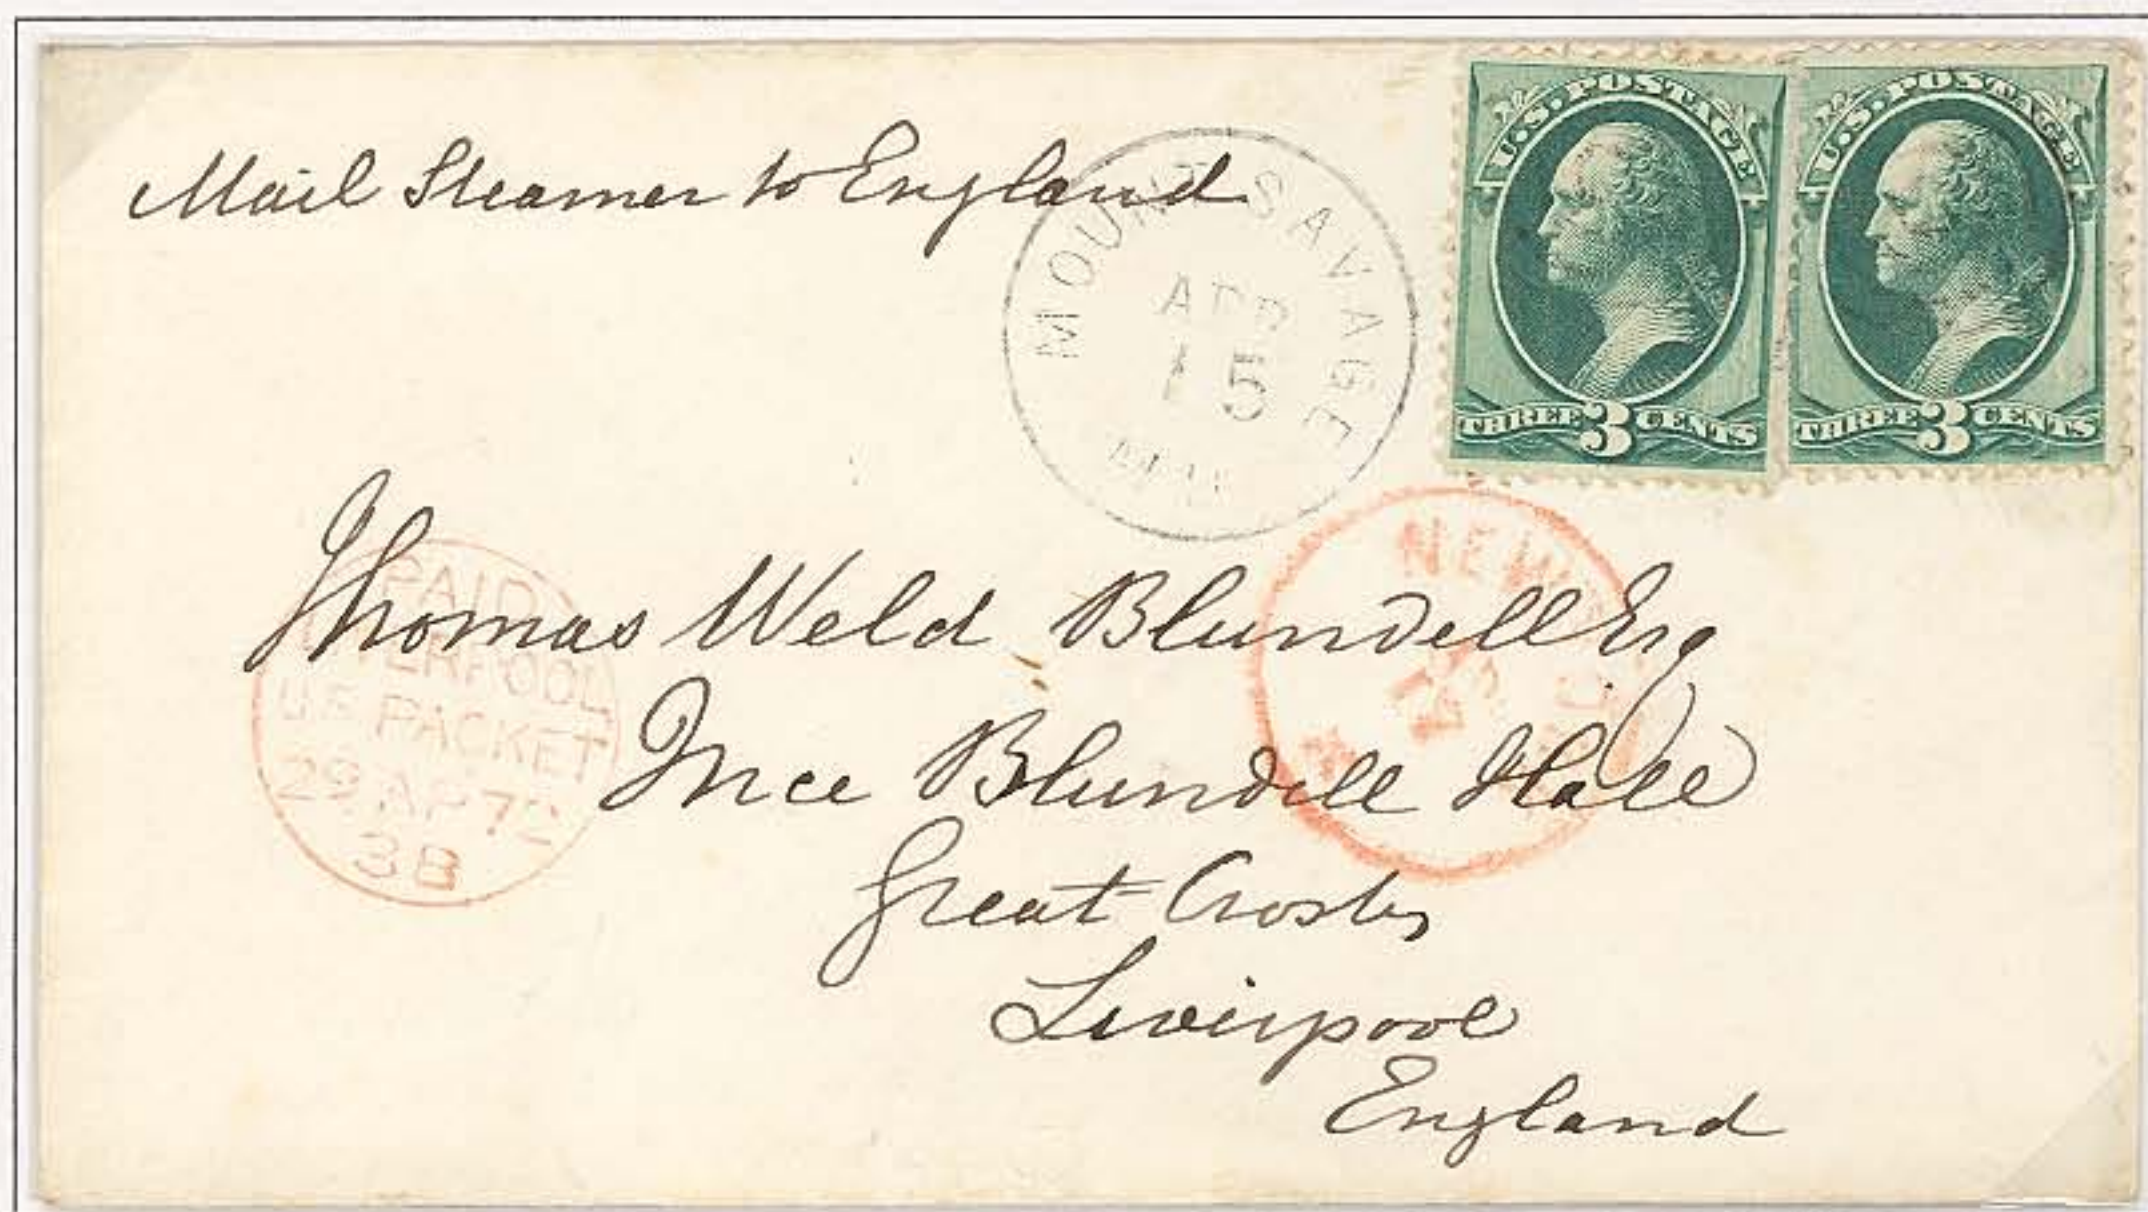 Mail Steamer to England
MOUNT SAVAGE
APR
15
U.S. POSTAGE
THREE 3 CENTS
U.S. POSTAGE
THREE 3 CENTS
NEW
PAID
LIVERPOOL
US PACKET
29 AP 72
3B
Thomas Weld Blundell Esq
Ince Blundell Hall
Great Crosby
Liverpool
England